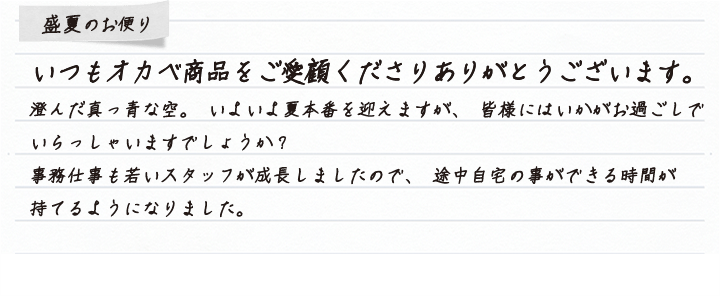 盛夏のお便り
いつもオカベ商品をご愛顧くださりありがとうございます。
澄んだ真っ青な空。 いよいよ夏本番を迎えますが、 皆様にはいかがお過ごしで
いらっしゃいますでしょうか?
事務仕事も若いスタッフが成長しましたので、 途中自宅の事ができる時間が
持てるようになりました。